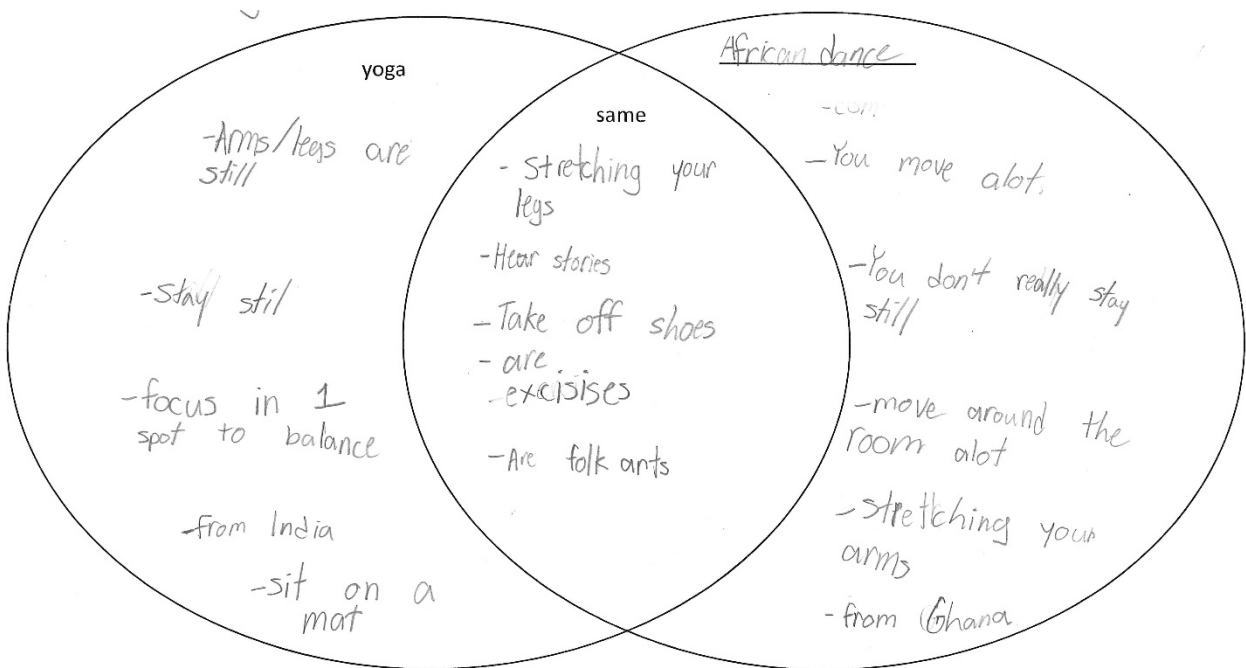 yoga
-Arms/legs are
still
-Stay stil
-focus in 1
spot to balance
-from India
-sit on a
mat
same
- Stretching your
legs
-Hear stories
-Take off shoes
- are
excisises
-Are folk arts
African dance
-com
-You move alot.
-You don't really stay
still
-move around the
room alot
-stretching your
arms
-from Ghana